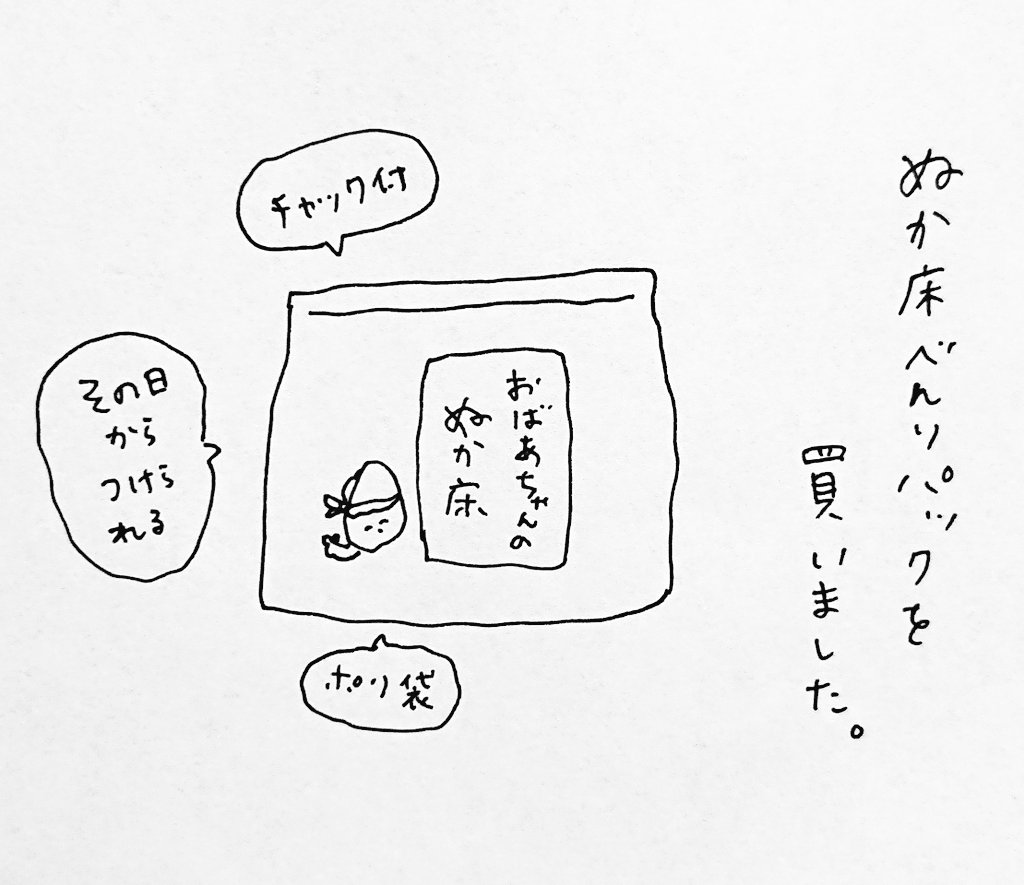 ぬか床べんりパックを
買いました。
チャック付
おばあちゃんの
ぬか床
その日
から
つけら
れる
ポリ袋